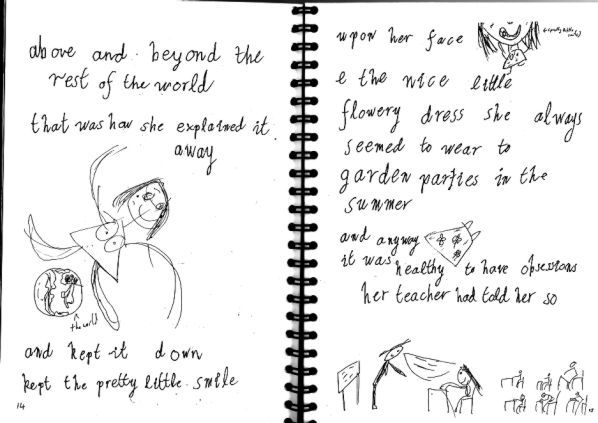 above and beyond the
rest of the world
that was how she explained it
away
the world
and kept it down
kept the pretty little smile
14
upon her face
& the nice little
flowery dress she always
seemed to wear to
garden parties in the
summer
and anyway
it was healthy to have obsessions
her teacher had told her so